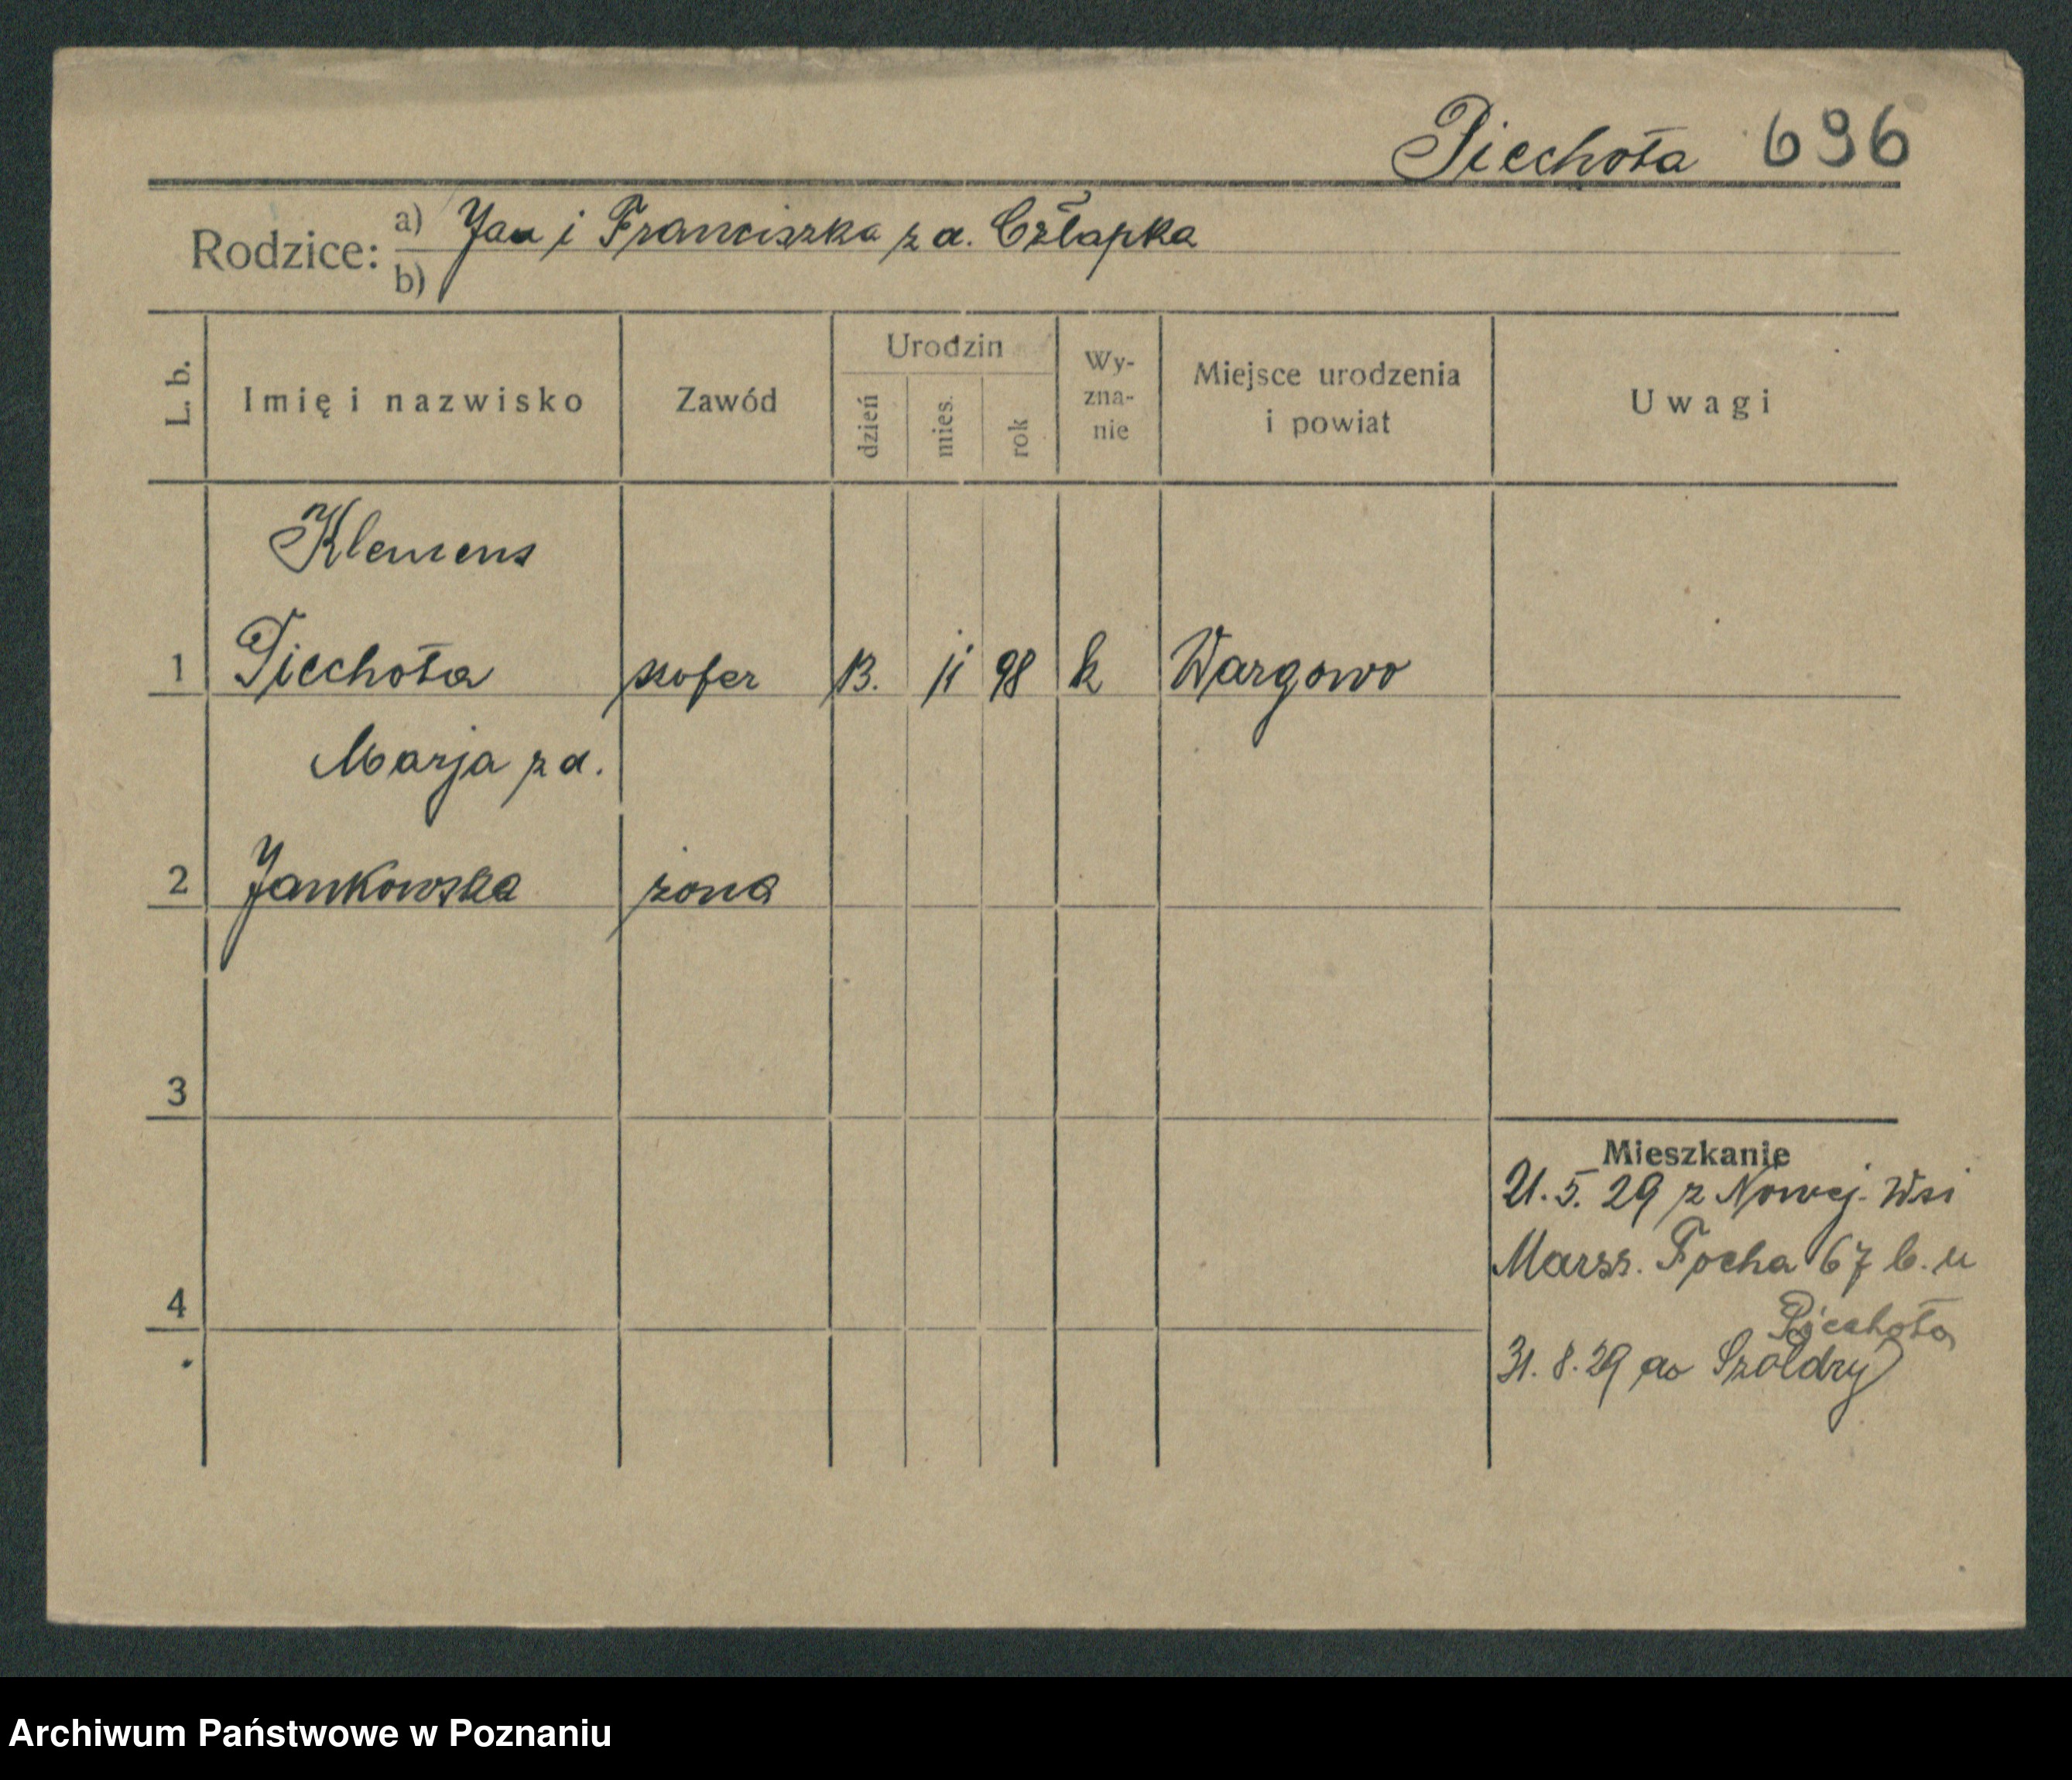 Piechota 696
Rodzice: a) Jan i Franciszka z d. Człapka
b)
L. b. Imię i nazwisko Zawód Urodzin dzień mies. rok Wy-zna-nie Miejsce urodzenia i powiat Uwagi
Klemens
1 Piechota szofer 13. 11 98 k Wargowo
Marja z d.
2 Jankowska żona
3
Mieszkanie
21. 5. 29 z Nowej-Wsi
Marsz. Focha 67 b. u
4
Piechota
31. 8. 29 do Szołdry
Archiwum Państwowe w Poznaniu